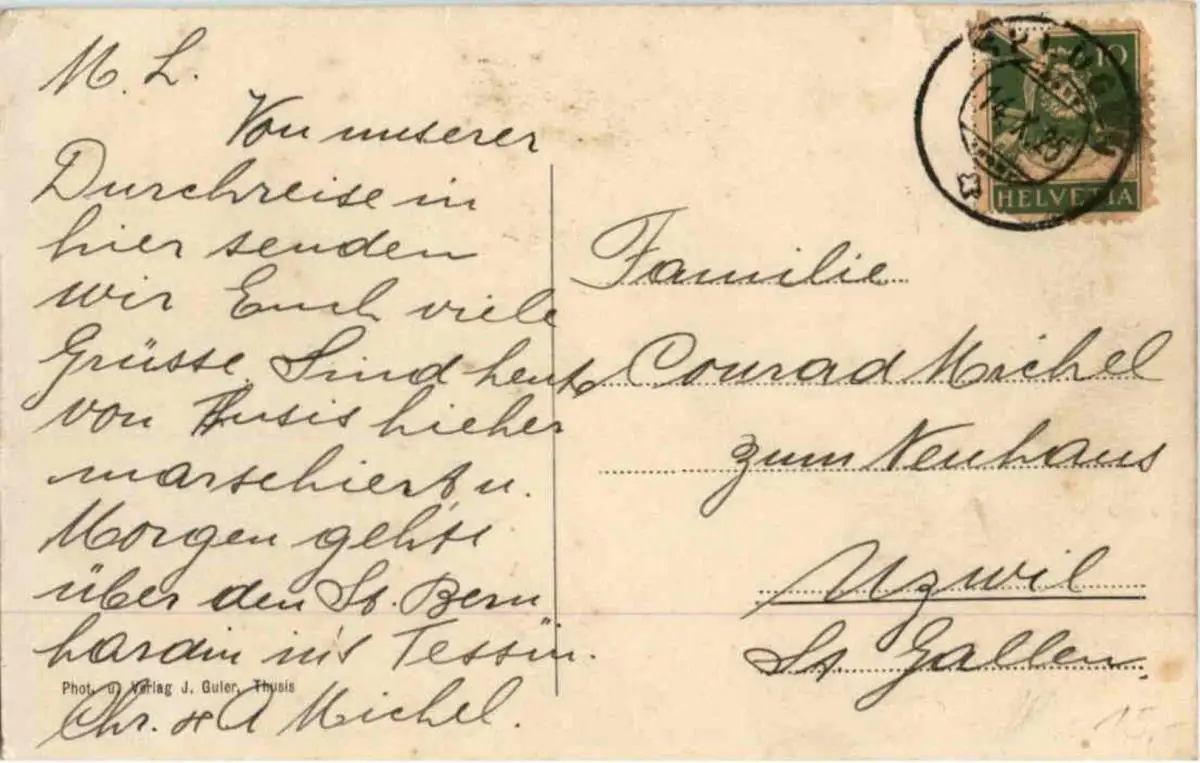 M. L.
Von unserer
Durchreise in
hier senden
wir Euch viele
Grüsse. Sind heute
von Thusis hieher
marschiert u.
Morgen geht's
über den St. Bern
hardin in's Tessin.
Phot. u. Verlag J. Guler, Thusis
Chr. & A Michel.
10
HELVETIA
SPLÜGEN
14.X.25
Familie
Conrad Michel
zum Neuhaus
Uzwil
St. Gallen
15.-